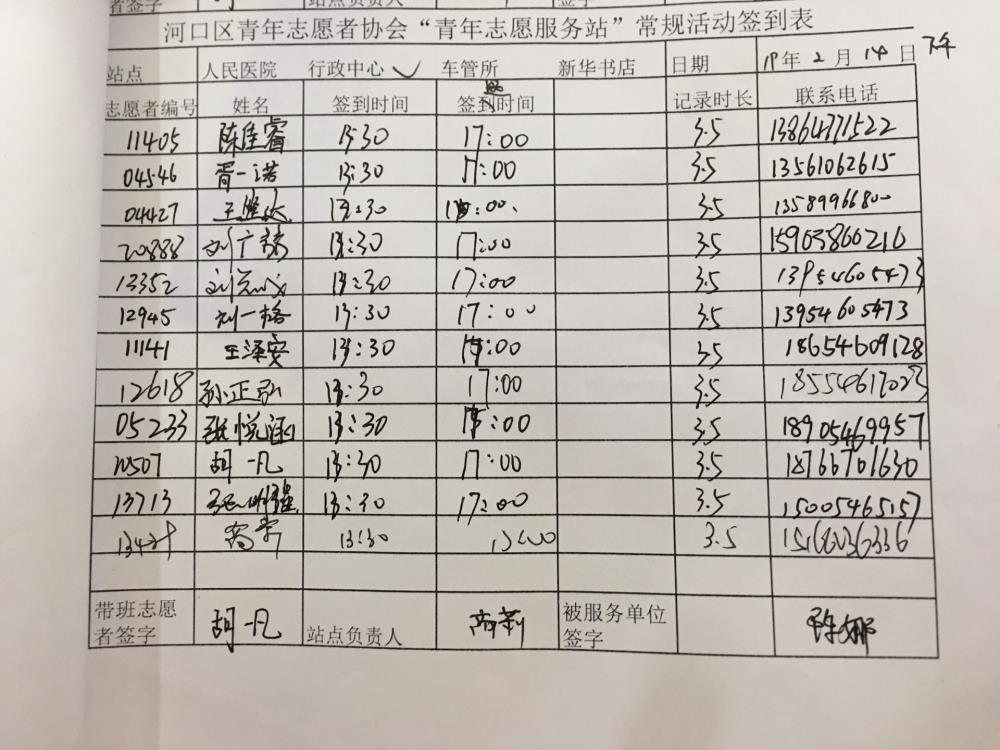 者签字 站点负责人 签字
河口区青年志愿者协会“青年志愿服务站”常规活动签到表
站点 人民医院 行政中心 ✓ 车管所 新华书店 日期 19年2月14日 下午
志愿者编号 姓名 签到时间 签退时间 记录时长 联系电话
11405 陈佳睿 13:30 17:00 3.5 13864771522
04546 胥一诺 13:30 17:00 3.5 13561062615
04427 13:30 17:00 3.5 13589966800
20888 刘广赫 13:30 17:00 3.5 15903860216
13352 13:30 17:00 3.5 13954605473
12945 刘一格 13:30 17:00 3.5 13954605473
11141 王泽安 13:30 17:00 3.5 18654609128
12618 孙正弘 13:30 17:00 3.5 18554617023
05233 张悦涵 13:30 17:00 3.5 18905469957
胡一凡 13:30 17:00 3.5 18766701630
13713 13:30 17:00 3.5 15005465157
13:30 3.5
带班志愿者签字 胡一凡 站点负责人 商莉 被服务单位签字 陈娜